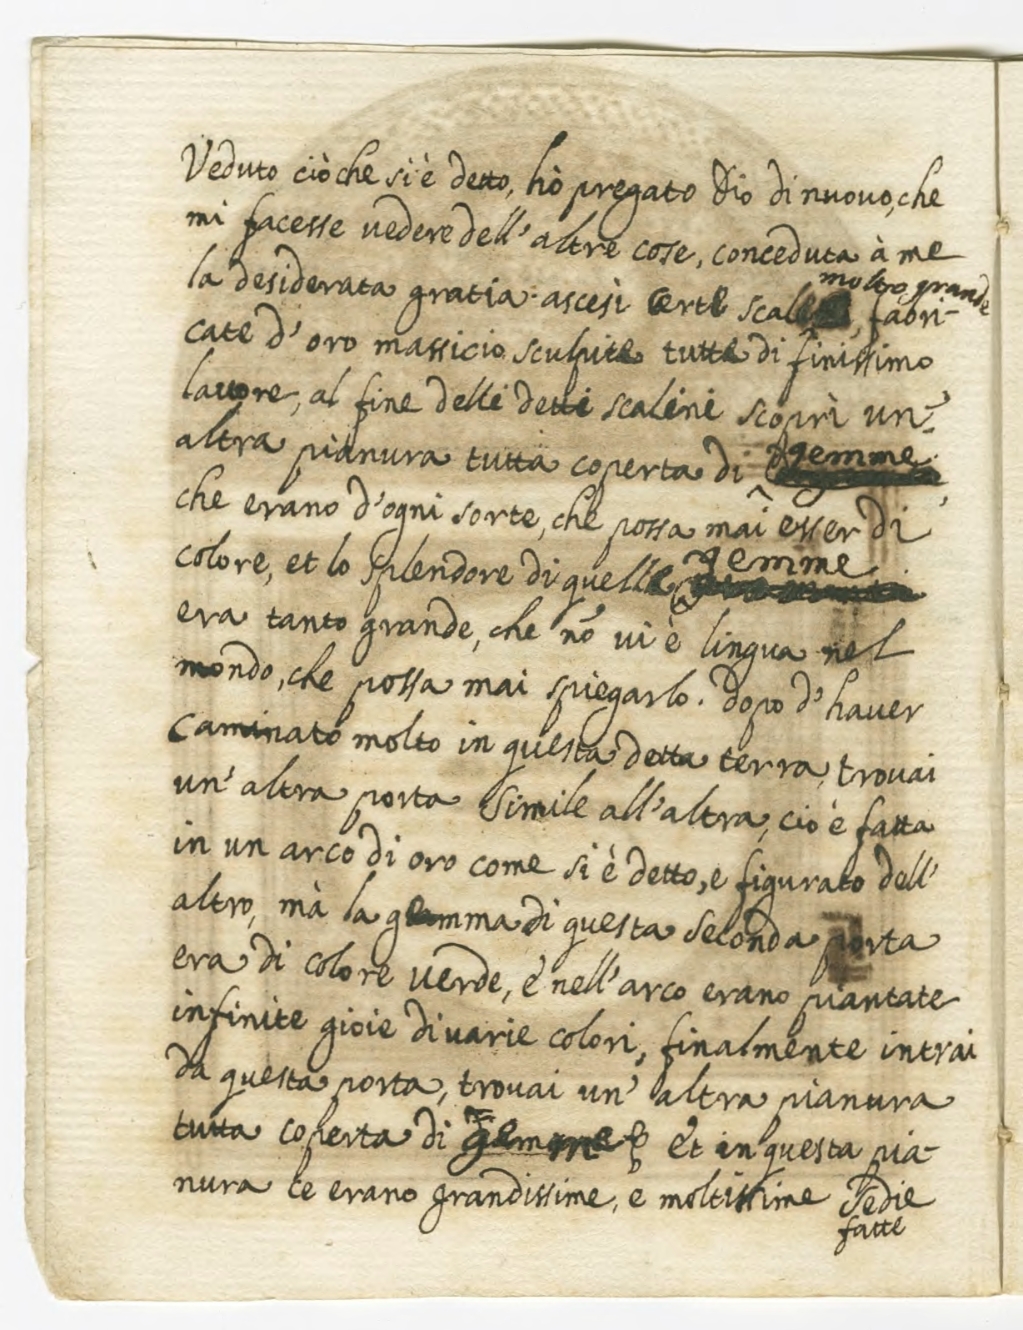 Veduto ciò che si è detto, hò pregato Dio di nuovo, che
mi facesse vedere dell'altre cose, conceduta à me
la desiderata gratia ascesi certe scale molto grande, fabri-
cate d'oro massicio sculpite tutte di finissimo
lauore, al fine delli detti scalini scoprì un'
altra pianura tutta coperta di gemme
che erano d'ogni sorte, che possa mai esser di
colore, et lo splendore di quelle gemme
era tanto grande, che nõ vi è lingua nel
mondo, che possa mai spiegarlo. dopo d'hauer
caminato molto in questa detta terra, trouai
un'altra porta simile all'altra, cioè fatta
in un arco di oro come si è detto, e figurato dell'
altro, mà la gemma di questa seconda porta
era di colore verde, e nell'arco erano piantate
infinite gioie di uarie colori, finalmente intrai
da questa porta, trouai un'altra pianura
tutta coperta di gemme et in questa pia-
nura ce erano grandissime, e moltissime sedie
fatte